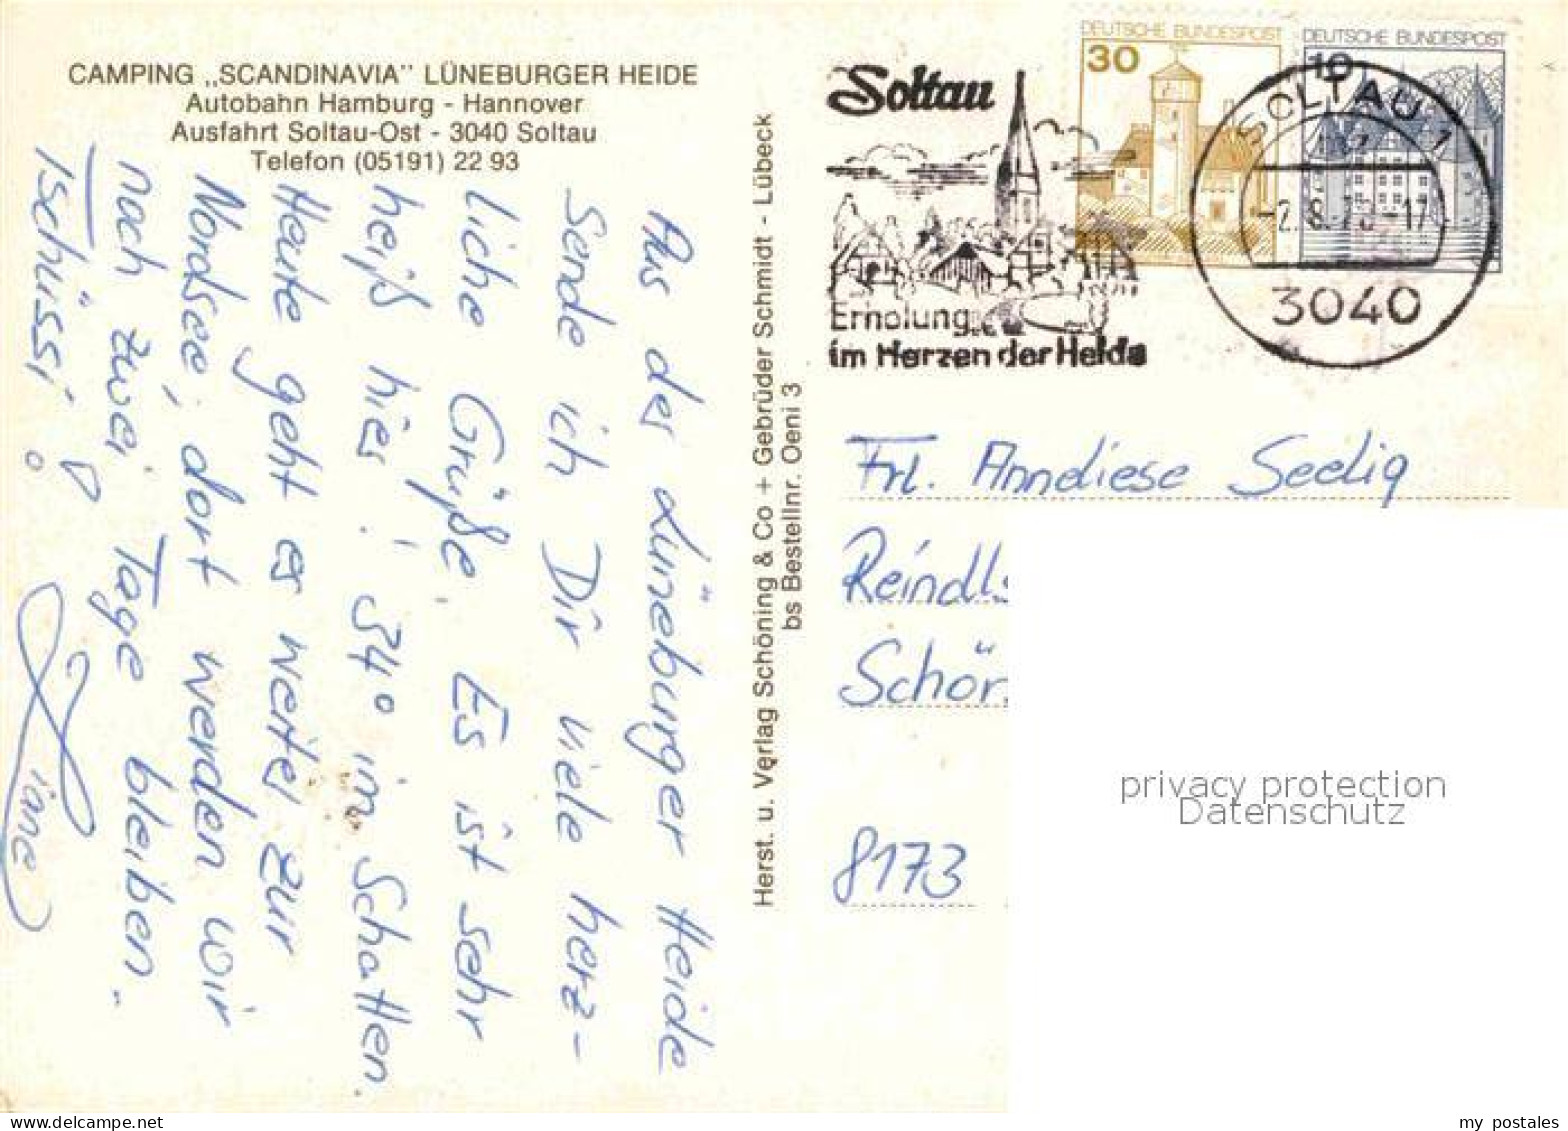 CAMPING „SCANDINAVIA" LÜNEBURGER HEIDE
Autobahn Hamburg - Hannover
Ausfahrt Soltau-Ost - 3040 Soltau
Telefon (05191) 22 93
Aus der Lüneburger Heide
sende ich Dir viele herz-
liche Grüße. Es ist sehr
heiß hier! 34° im Schatten.
Heute geht es weiter zur
Nordsee, dort werden wir
noch zwei Tage bleiben.
Tschüssi!
Herst. u. Verlag Schöning & Co + Gebrüder Schmidt - Lübeck
bs Bestellnr. Oeni 3
Soltau
Erholung
im Herzen der Heide
DEUTSCHE BUNDESPOST
30
DEUTSCHE BUNDESPOST
10
SOLTAU 1
3040
Frl. Anneliese Seelig
Reindls
Schör
8173
privacy protection
Datenschutz
my postales